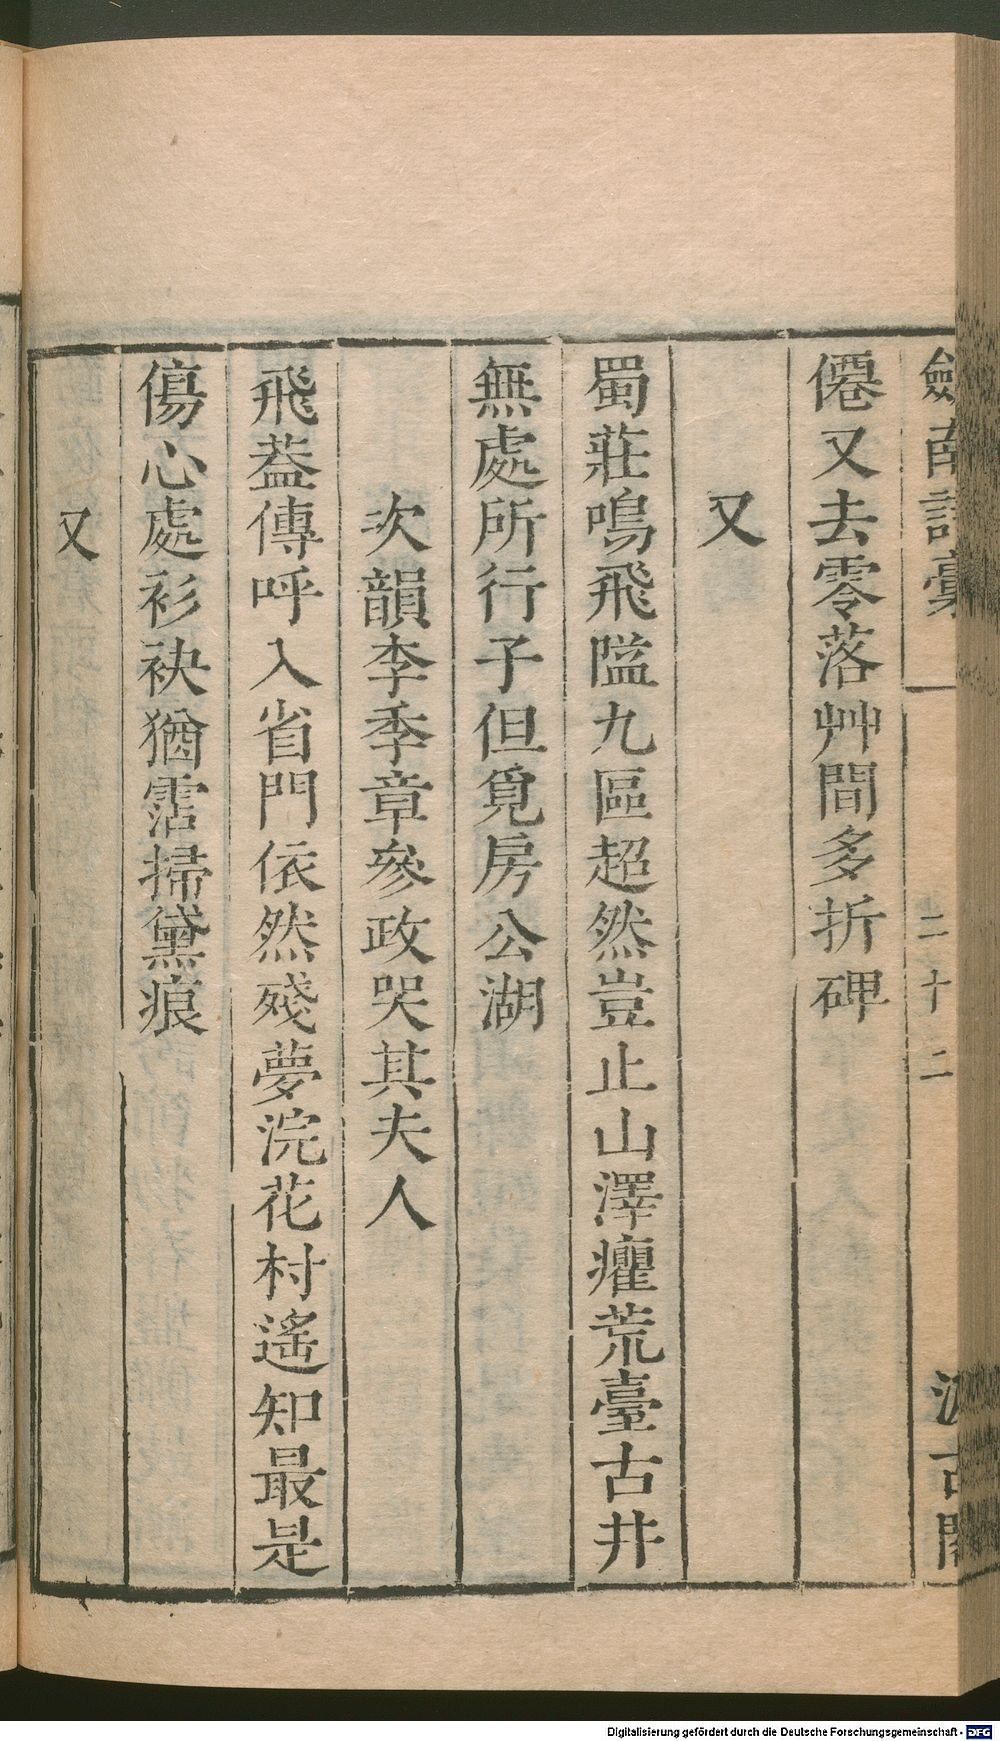 劒南詩稾 二十二 汲古閣
僊又去零落艸間多折碑
又
蜀莊鳴飛隘九區超然豈止山澤癯荒臺古井
無處所行子但覓房公湖
次韻李季章參政哭其夫人
飛葢傳呼入省門依然殘夢浣花村遙知最是
傷心處衫袂猶霑掃黛痕
又
Digitalisierung gefördert durch die Deutsche Forschungsgemeinschaft - DFG